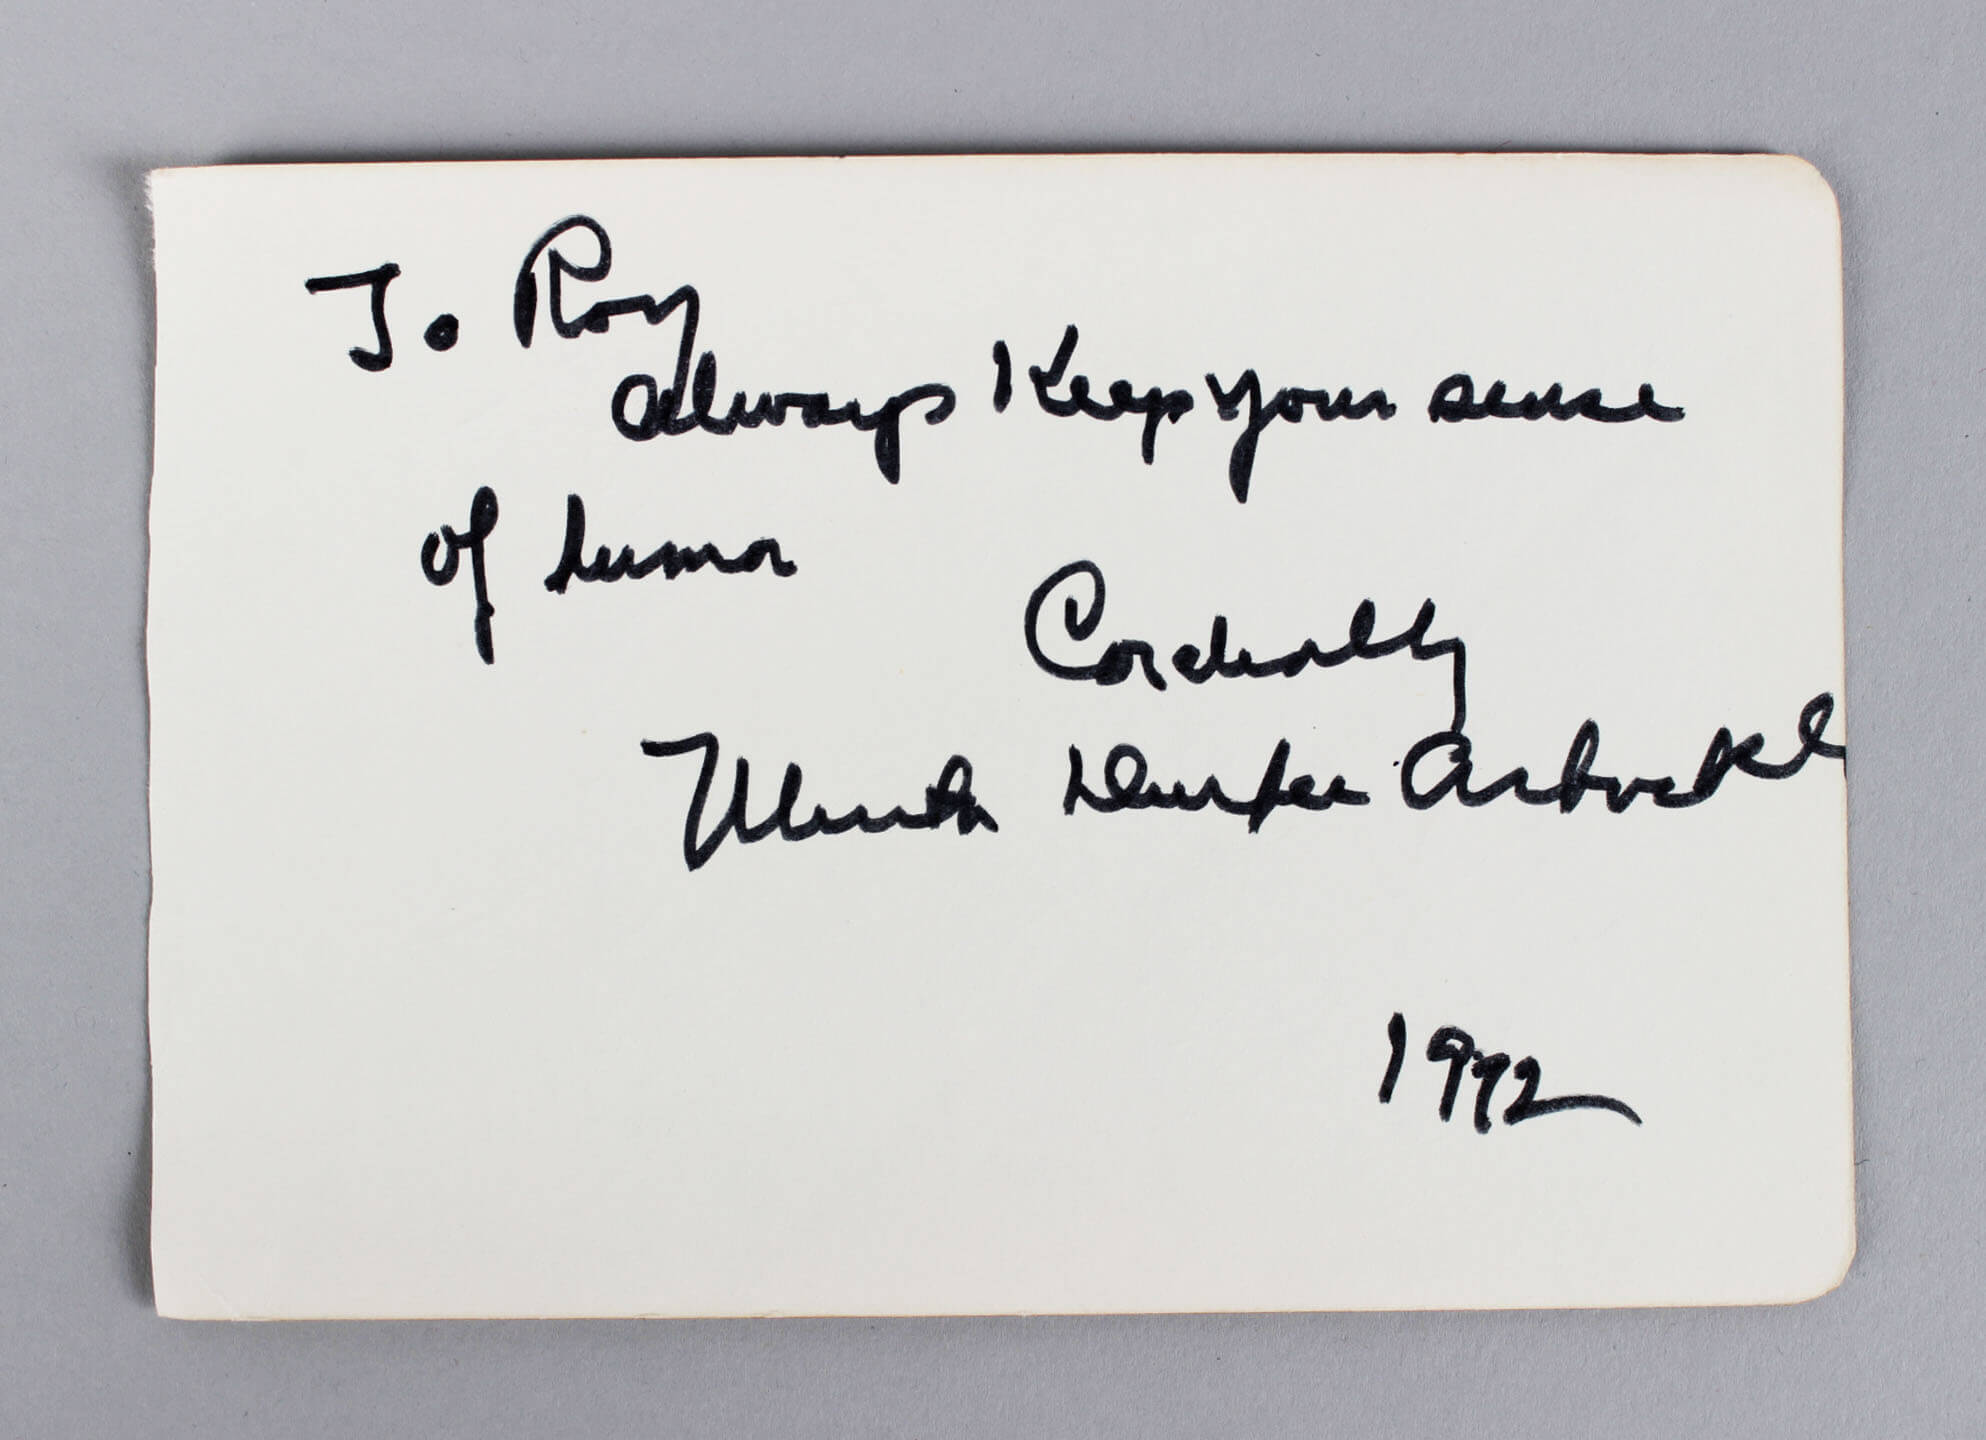 To Roy
Always Keep your sense
of humor
Cordially
Minta Durfee Arbuckle
1972